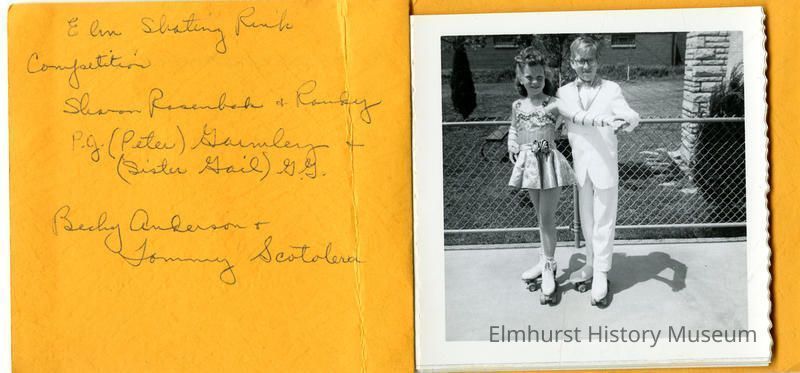 Elm Skating Rink
Competition
Sharon Rosenbek & Randy
P.J. (Peter) Gormley &
(Sister Gail) G.G.
Becky Anderson &
Tommy Scotolera
Elmhurst History Museum